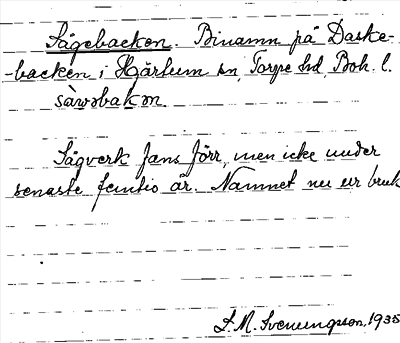 Sågebacken. Binamn på Daske-
-backen i Hjärtum sn Torpe hd Boh. l.
sàwəbakən.
Sågverk fans förr, men icke under
senaste femtio år. Namnet nu ur bruk
S. M. Svenungsson, 1935